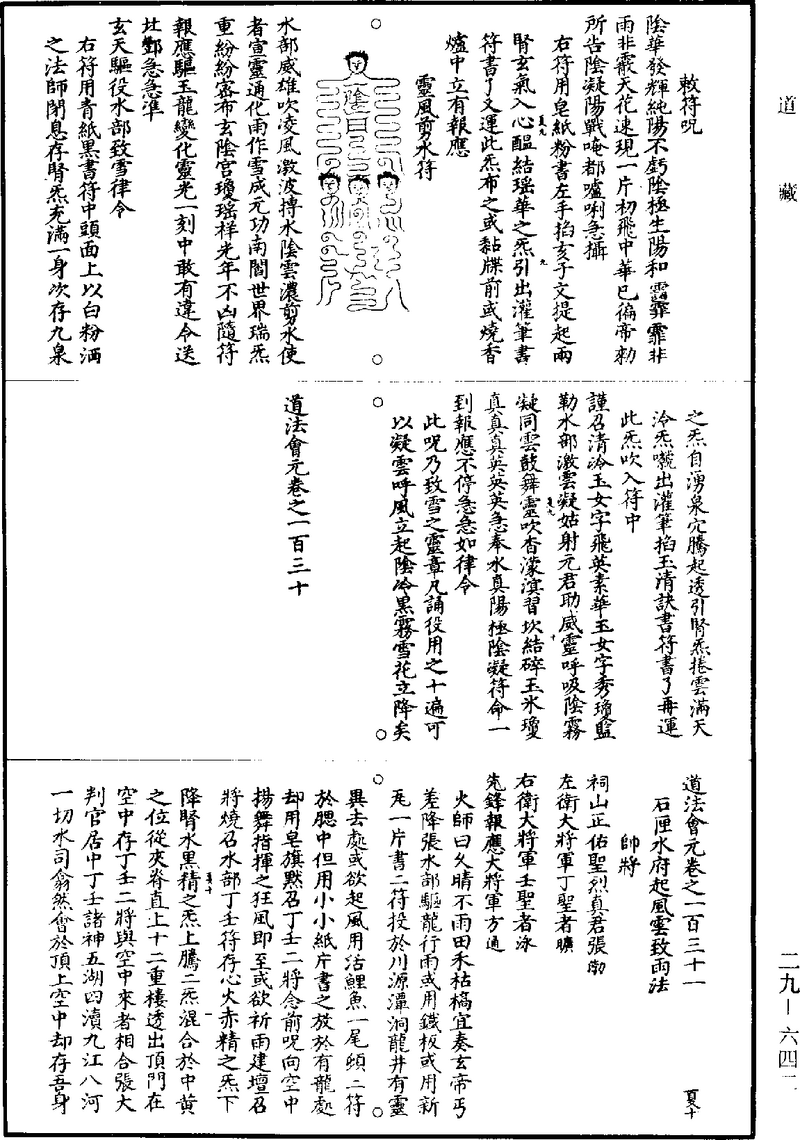 道藏
敕符呪
陰華發輝純陽不虧陰極生陽和霤霏霏非
雨非霰天花速現一片初飛中華已徧帝勅
所告陰凝陽戰唵都嚧唎急攝
右符用皂紙粉書左手掐亥子文提起兩
腎玄氣入心醞結瑤華之炁引出灌筆書
符書了又運此炁布之或黏牒前或燒香
爐中立有報應
靈風剪水符
水部威雄吹凌風激波搏水陰雲濃剪水使
者宣靈通化雨作雪成元功南閻世界瑞炁
重紛紛密布玄陰宮瓊瑶祥光年不凶隨符
報應驅玉龍變化靈光一刻中敢有違令送
北酆急急準
玄天驅役水部致雪律令
右符用青紙黑書符中頭面上以白粉洒
之法師閉息存腎炁充滿一身次存九泉
之炁自湧泉穴騰起透引腎炁捲雲滿天
泠炁嚱出灌筆掐玉清訣書符書了再運
此炁吹入符中
謹召清泠玉女字飛英素華玉女字秀瓊監
勒水部激雲凝姑射元君助威靈呼吸陰霧
凝同雲鼓舞靈吹杳濛溟習坎結碎玉氷瓊
真真真英英英急奉水真陽極陰凝符命一
到報應不停急急如律令
此呪乃致雪之靈章凡誦役用之十遍可
以凝雲呼風立起陰冷黑霧雪花立降矣
道法會元卷之一百三十
道法會元卷之一百三十一
石匣水府起風雲致雨法
帥將
祠山正佑聖烈真君張渤
左衛大將軍丁聖者曠
右衛大將軍壬聖者泳
先鋒報應大將軍方通
火師曰久晴不雨田禾枯槁宜奏玄帝丐
差降張水部驅龍行雨或用鐵板或用新
瓦一片書二符投於川源潭洞龍井有靈
異去處或欲起風用活鯉魚一尾傾二符
於腮中但用小小紙片書之放於有龍處
却用皂旗黙召丁壬二將念前呪向空中
揚舞指揮之狂風即至或欲祈雨建壇召
將燒召水部丁壬符存心火赤精之炁下
降腎水黑精之炁上騰二炁混合於中黃
之位從夾脊直上十二重樓透出頂門在
空中存丁壬二將與空中來者相合張大
判官居中丁壬諸神五湖四瀆九江八河
一切水司翕然會於頂上空中却存吾身
二九－六四二
夏十